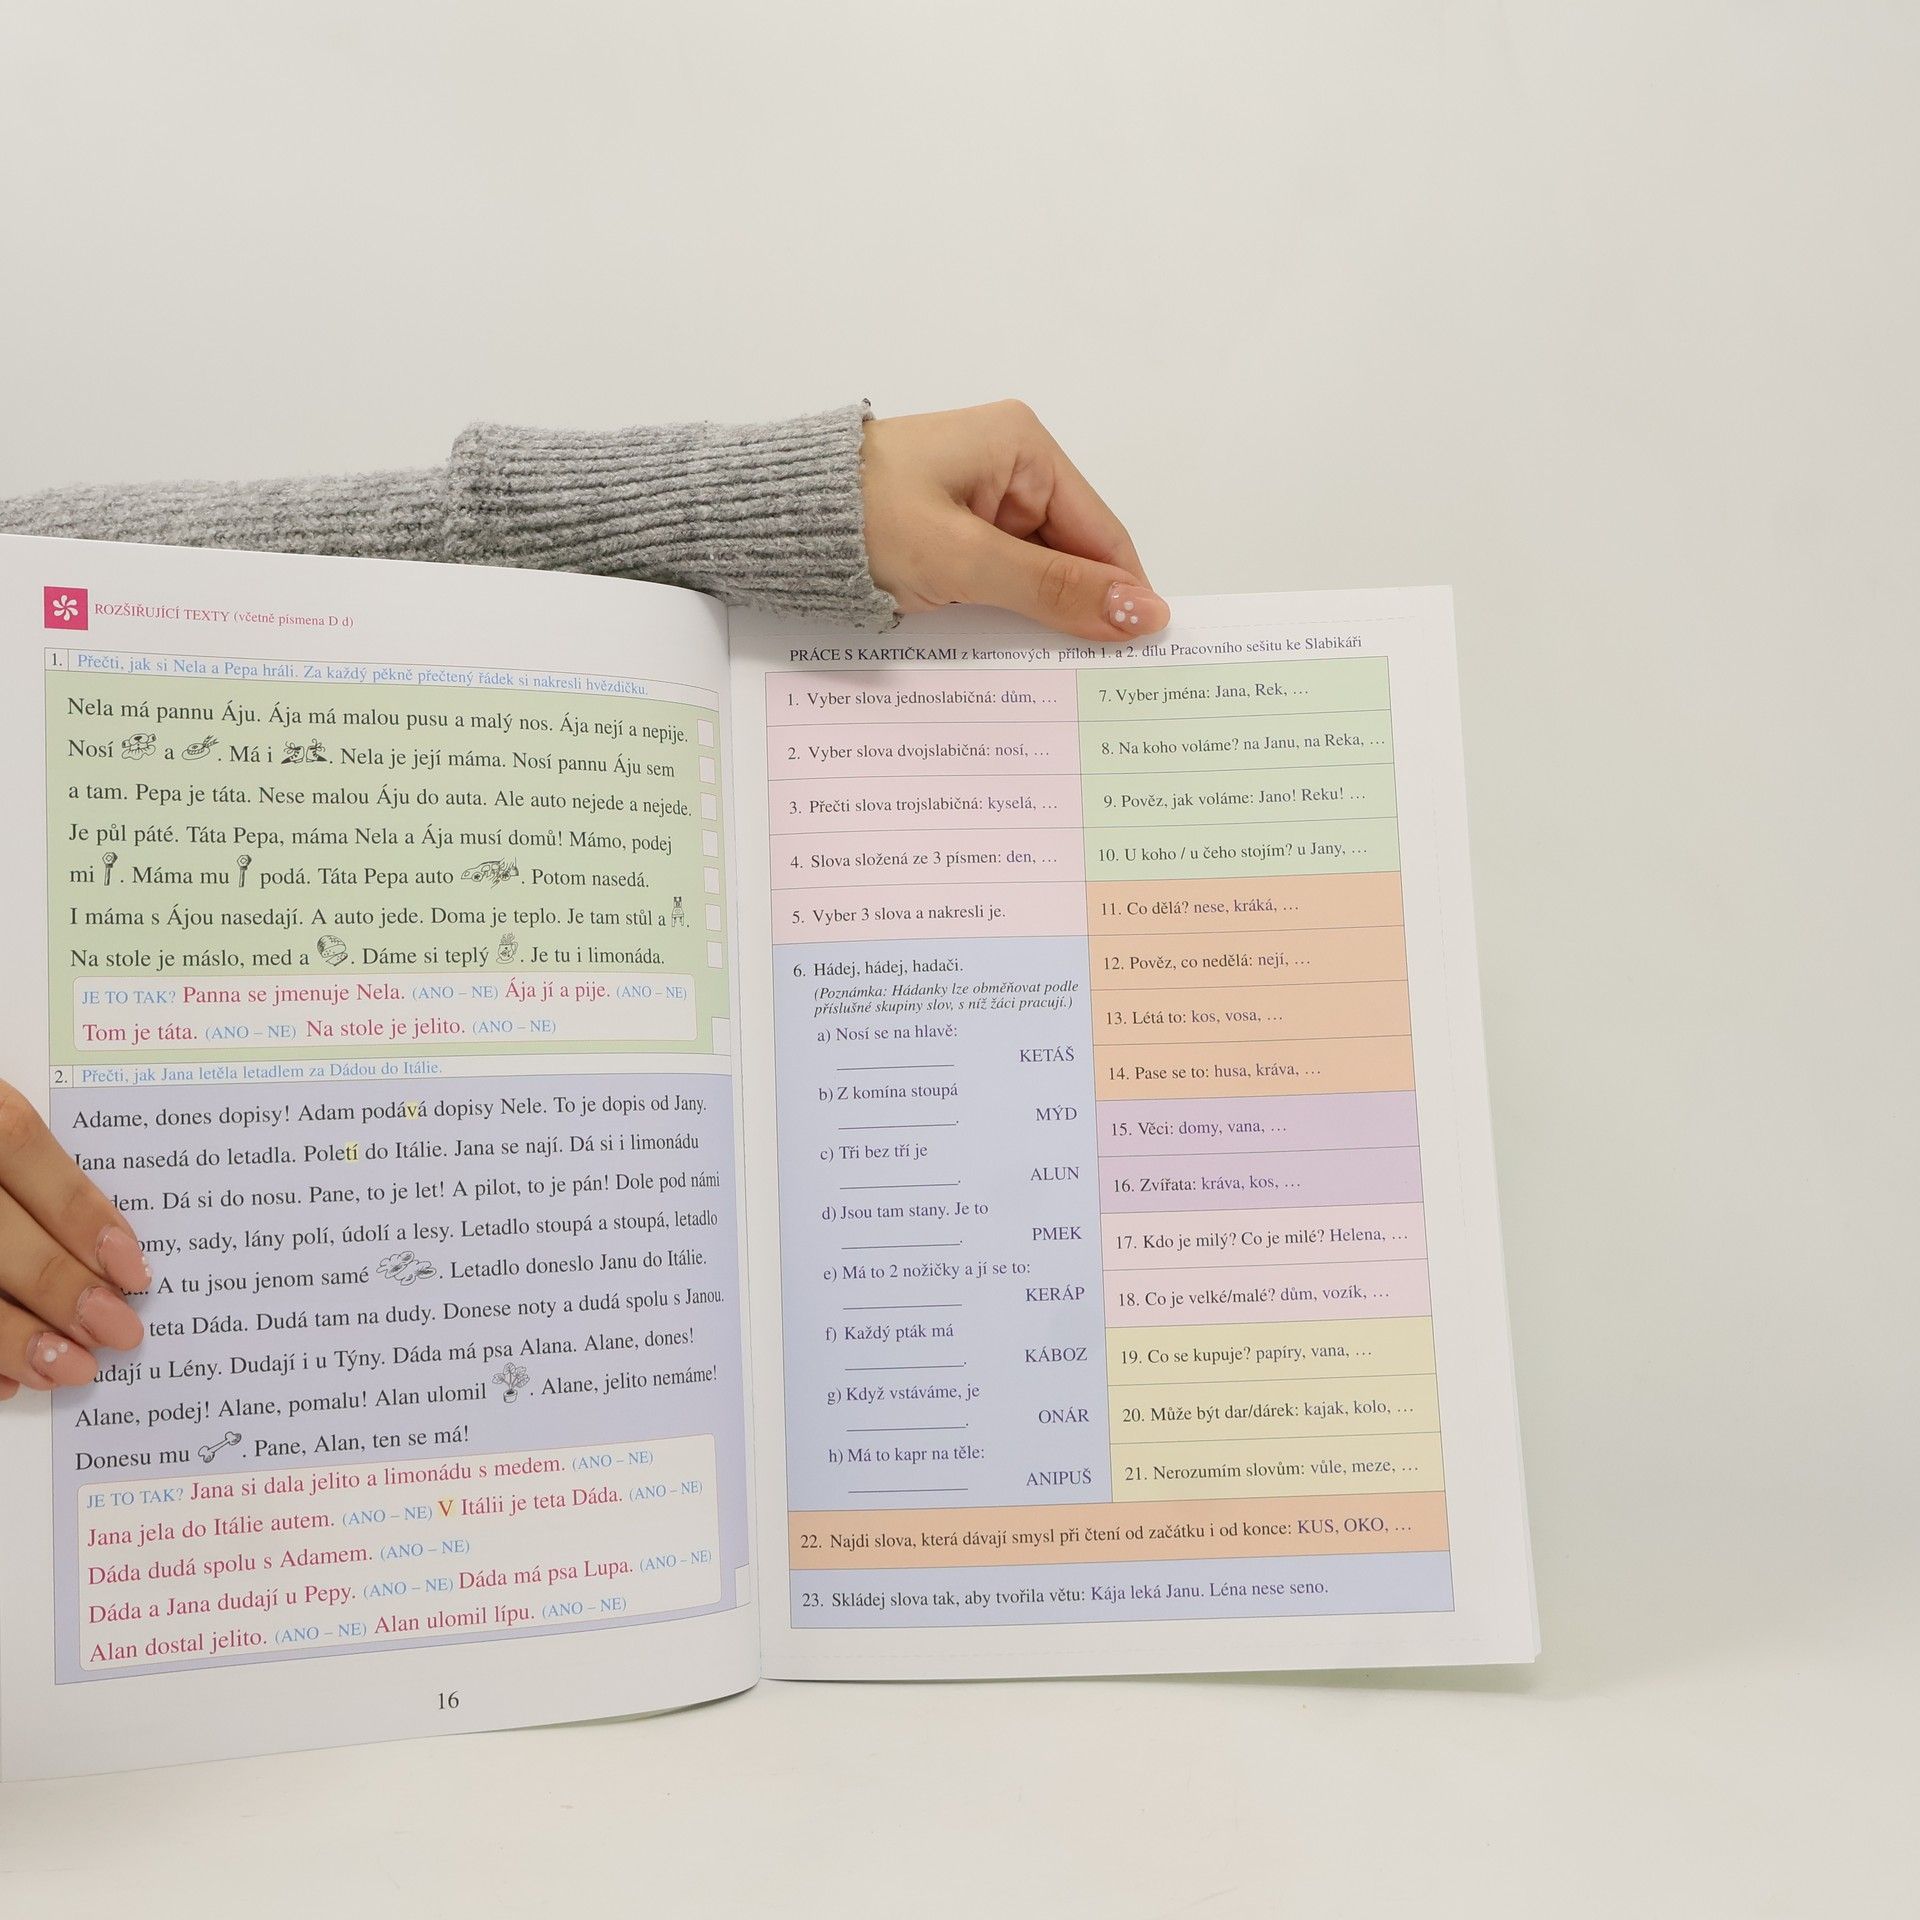 ROZŠIŘUJÍCÍ TEXTY (včetně písmena D d)
1. Přečti, jak si Nela a Pepa hráli. Za každý pěkně přečtený řádek si nakresli hvězdičku.
Nela má pannu Áju. Ája má malou pusu a malý nos. Ája nejí a nepije.
Nosí a . Má i . Nela je její máma. Nosí pannu Áju sem
a tam. Pepa je táta. Nese malou Áju do auta. Ale auto nejede a nejede.
Je půl páté. Táta Pepa, máma Nela a Ája musí domů! Mámo, podej
mi . Máma mu podá. Táta Pepa auto . Potom nasedá.
I máma s Ájou nasedají. A auto jede. Doma je teplo. Je tam stůl a .
Na stole je máslo, med a . Dáme si teplý . Je tu i limonáda.
JE TO TAK? Panna se jmenuje Nela. (ANO – NE) Ája jí a pije. (ANO – NE)
Tom je táta. (ANO – NE) Na stole je jelito. (ANO – NE)
2. Přečti, jak Jana letěla letadlem za Dádou do Itálie.
Adame, dones dopisy! Adam podává dopisy Nele. To je dopis od Jany.
Jana nasedá do letadla. Poletí do Itálie. Jana se nají. Dá si i limonádu
dem. Dá si do nosu. Pane, to je let! A pilot, to je pán! Dole pod námi
omy, sady, lány polí, údolí a lesy. Letadlo stoupá a stoupá, letadlo
A tu jsou jenom samé . Letadlo doneslo Janu do Itálie.
teta Dáda. Dudá tam na dudy. Donese noty a dudá spolu s Janou.
udají u Lény. Dudají i u Týny. Dáda má psa Alana. Alane, dones!
Alane, podej! Alane, pomalu! Alan ulomil . Alane, jelito nemáme!
Donesu mu . Pane, Alan, ten se má!
JE TO TAK? Jana si dala jelito a limonádu s medem. (ANO – NE)
Jana jela do Itálie autem. (ANO – NE) V Itálii je teta Dáda. (ANO – NE)
Dáda dudá spolu s Adamem. (ANO – NE)
Dáda a Jana dudají u Pepy. (ANO – NE) Dáda má psa Lupa. (ANO – NE)
Alan dostal jelito. (ANO – NE) Alan ulomil lípu. (ANO – NE)
16
PRÁCE S KARTIČKAMI z kartonových příloh 1. a 2. dílu Pracovního sešitu ke Slabikáři
1. Vyber slova jednoslabičná: dům, …
2. Vyber slova dvojslabičná: nosí, …
3. Přečti slova trojslabičná: kyselá, …
4. Slova složená ze 3 písmen: den, …
5. Vyber 3 slova a nakresli je.
6. Hádej, hádej, hadači.
(Poznámka: Hádanky lze obměňovat podle
příslušné skupiny slov, s níž žáci pracují.)
a) Nosí se na hlavě:
KETÁŠ
b) Z komína stoupá
. MÝD
c) Tři bez tří je
. ALUN
d) Jsou tam stany. Je to
. PMEK
e) Má to 2 nožičky a jí se to:
KERÁP
f) Každý pták má
. KÁBOZ
g) Když vstáváme, je
. ONÁR
h) Má to kapr na těle:
ANIPUŠ
7. Vyber jména: Jana, Rek, …
8. Na koho voláme? na Janu, na Reka, …
9. Pověz, jak voláme: Jano! Reku! …
10. U koho / u čeho stojím? u Jany, …
11. Co dělá? nese, kráká, …
12. Pověz, co nedělá: nejí, …
13. Létá to: kos, vosa, …
14. Pase se to: husa, kráva, …
15. Věci: domy, vana, …
16. Zvířata: kráva, kos, …
17. Kdo je milý? Co je milé? Helena, …
18. Co je velké/malé? dům, vozík, …
19. Co se kupuje? papíry, vana, …
20. Může být dar/dárek: kajak, kolo, …
21. Nerozumím slovům: vůle, meze, …
22. Najdi slova, která dávají smysl při čtení od začátku i od konce: KUS, OKO, …
23. Skládej slova tak, aby tvořila větu: Kája leká Janu. Léna nese seno.